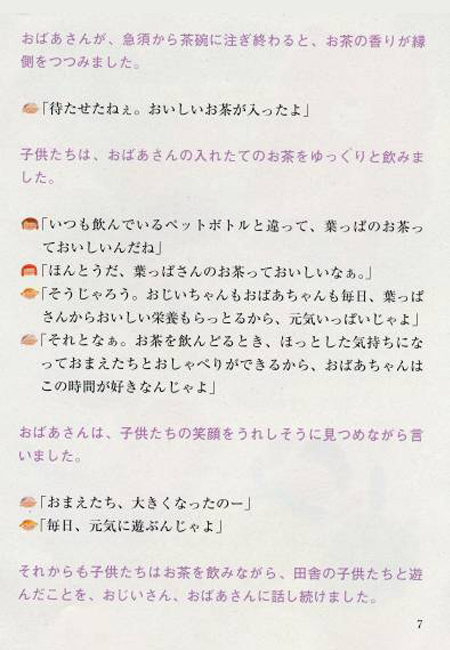 おばあさんが、急須から茶碗に注ぎ終わると、お茶の香りが縁
側をつつみました。
「待たせたねぇ。おいしいお茶が入ったよ」
子供たちは、おばあさんの入れたてのお茶をゆっくりと飲みま
した。
「いつも飲んでいるペットボトルと違って、葉っぱのお茶っ
ておいしいんだね」
「ほんとうだ、葉っぱさんのお茶っておいしいなぁ。」
「そうじゃろう。おじいちゃんもおばあちゃんも毎日、葉っぱ
さんからおいしい栄養もらっとるから、元気いっぱいじゃよ」
「それとなぁ。お茶を飲んどるとき、ほっとした気持ちにな
っておまえたちとおしゃべりができるから、おばあちゃんは
この時間が好きなんじゃよ」
おばあさんは、子供たちの笑顔をうれしそうに見つめながら言
いました。
「おまえたち、大きくなったのー」
「毎日、元気に遊ぶんじゃよ」
それからも子供たちはお茶を飲みながら、田舎の子供たちと遊
んだことを、おじいさん、おばあさんに話し続けました。
7